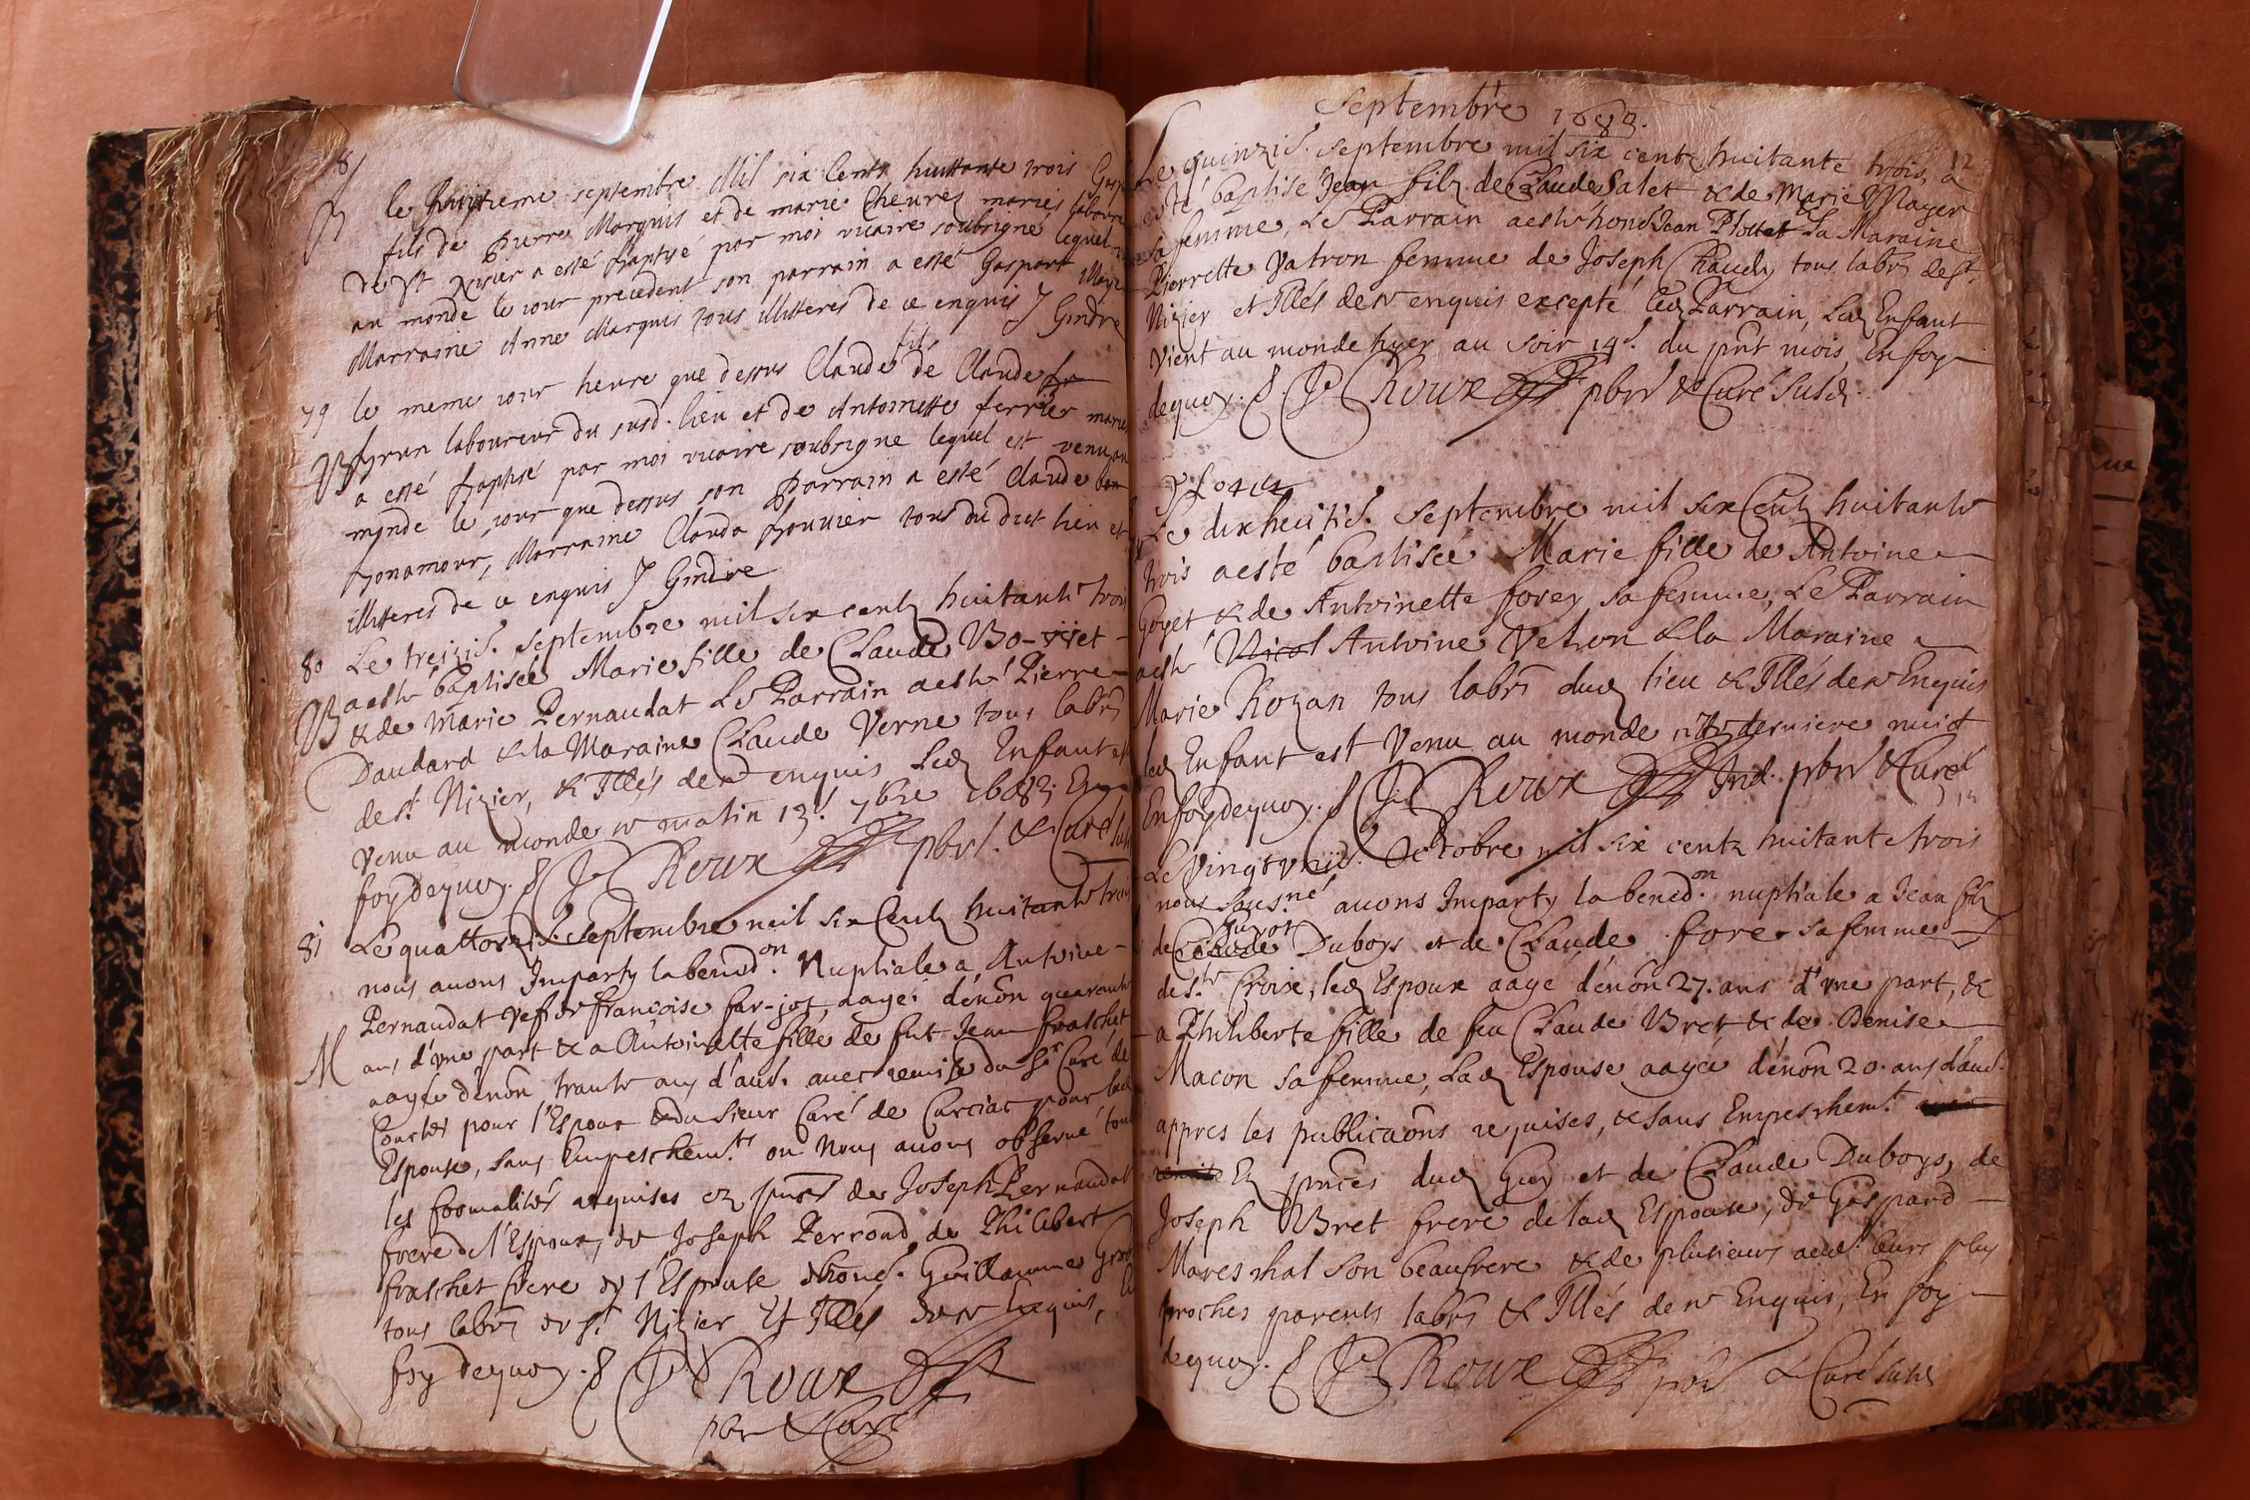 le huitieme septembre Mil six Cents huittante trois
fils de pierre Marquis et de marie Cheures mariés
de St Nizier a esté baptisé par moi vicaire soubsigné lequel
au monde le iour precedent son parrain a esté Gaspart
Marraine Anne Marquis tous illitteres de ce enquis J Gindre
79 le meme iour heure que dessus Claude fils de Claude
B laboureur du susd. lieu et de Antoinette ferrier
a esté baptisé par moi vicaire soubsigne lequel est venu au
monde le iour que dessus son parrain a esté Claude bon
bonamour, Marraine Clauda bouuier tous du dict lieu et
illitteres de ce enquis J Gindre
80 Le treizie. septembre mil six centz huitante trois
B aesté baptisée Marie fille de Claude
& de Marie Pernaudat Le Parrain aesté Pierre
Daudard & la Maraine Claude Verne tous labrs
de st. Nizier, & Illés dece enquis Led Enfant est
venu au monde ce matin 13e. 7bre 1683. En
foy dequoy. Je Roux pbre. & Curé
81 Le quattorzie. septembre mil six Centz huitante trois
nous auons Imparty la bened.on Nuptiale a Antoine
M Pernaudat vef de francoise far-jot, aagé d'enon quarante
ans d'vne part & a Antoinette fille de fut Jean fraschet
aagée d'enon trante ans d'aud. auec remise du sr Curé de
pour l'Espoux & du sieur Curé de Curciat pour lad
Espouse, sans Empeschem.ts ou Nous auons obserué tous
les formalités requises ez pnces de Joseph Pernaudat
frere de l'Espoux, de Joseph Perroud, de Philibert
fraschet frere de l'Espouse & hones. Guillaume
tous labrs de st Nizier Et Illés dece Enquis,
foy dequoy. Je Roux
pbre & Curé
Septembre 1683.
Le quinzie. septembre mil six centz huitante trois, a
esté baptisé Jean filz de Claude Salet & de Marie Mayer
sa femme, Le Parrain aesté hones Jean Ploton La Maraine
Pierrette Vatron femme de Joseph Chaudy tous labrs de st.
Nizier et Illés dece enquis excepté led Parrain, Led Enfant
Vient au monde hyer au soir 14e. du pnt mois, En foy
dequoy. Je Roux pbre & Curé susd.
Le dixhuitie. septembre mil six Centz huitante
trois aesté baptisée Marie fille de Antoine
Goyet & de Antoinette forey sa femme, Le Parrain
aesté Antoine Vetron & la Maraine
Marie Rozan tous labrs dud lieu & Illés dece Enquis
led Enfant est Venu au monde derniere nuict
En foy dequoy. Je Roux Ind. pbre & Curé
Le Vingtvnie. Octobre mil six centz huitante trois
nous sousné auons Imparty la bened.on nuptiale a Jean filz
de Claude Duboys et de Claude fore sa femme
de ste Croix, led Espoux aagé d'enon 27. ans d'vne part, &
a Philiberte fille de feu Claude Bret & de Denise
Macon sa femme, Lad Espouse aagée d'enon 20. ans d'aud.
appres les publicaons requises, & sans Empeschem.t
Ez pnces dud Guy et de Claude Duboys, de
Joseph Bret frere de lad Espouse, de Gaspard
Mareschal son beaufrere & de plusieurs leurs plus
proches parents labrs & Illés dece Enquis, En foy
dequoy. Je Roux pbre & Curé susd